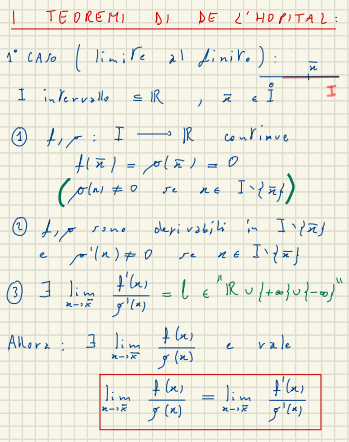 I TEOREMI DI DE L'HOPITAL:
1° CASO ( limite al finito ) : x̄
I intervallo ⊆ ℝ , x̄ ∈ I̊ I
① f, g : I → ℝ continue
f(x̄) = g(x̄) = 0
( g(x) ≠ 0 se x ∈ I∖{x̄} )
② f, g sono derivabili in I∖{x̄}
e g'(x) ≠ 0 se x ∈ I∖{x̄}
③ ∃ lim x→x̄ f'(x)/g'(x) = l ∈ "ℝ ∪ {+∞} ∪ {-∞}"
Allora : ∃ lim x→x̄ f(x)/g(x) e vale
lim x→x̄ f(x)/g(x) = lim x→x̄ f'(x)/g'(x)